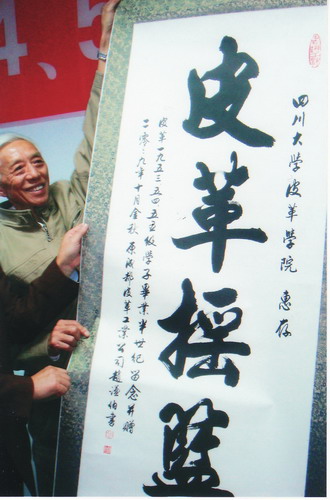 4、5
四川大学皮革学院 惠存
皮革摇篮
皮革一九五三五四五五级学子畢業半世纪留念并赠
二零零九年十月金秋 原成都皮革工業公司赵谊伯書